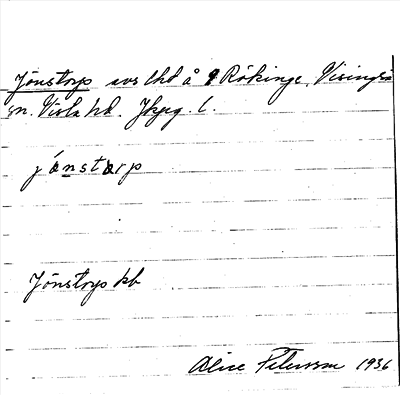 Jönstorp avs lht å Rökinge, Visingsö
sn. Vista hd. Jkpg. l.
jönstorp
Jönstorp kb
Alice Petersson 1936